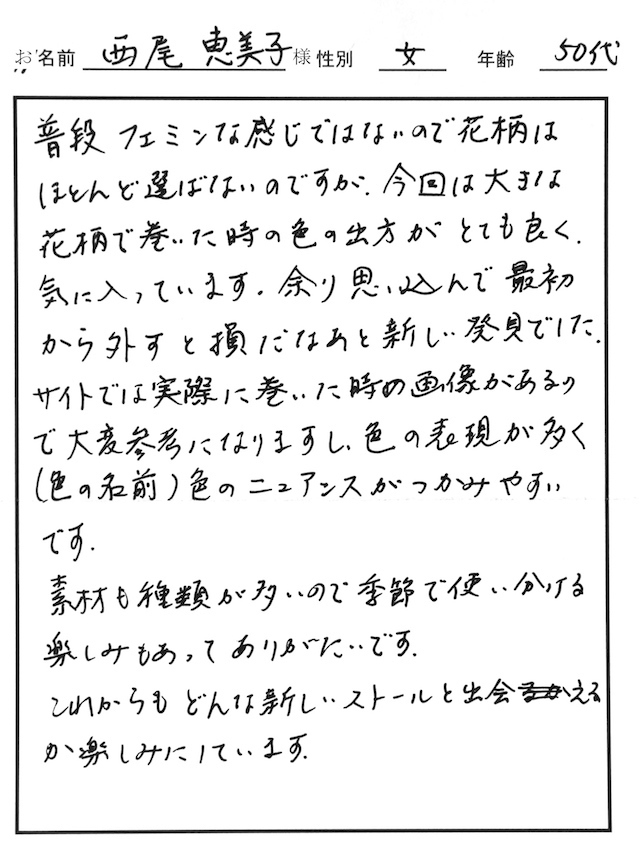 お名前 西尾 恵美子 様 性別 女 年齢 50代
普段 フェミンな感じではないので花柄は
ほとんど選ばないのですが、今回は大きな
花柄で巻いた時の色の出方が とても良く、
気に入っています。余り思い込んで最初
から外すと損だなあと新しい発見でした。
サイトでは実際に巻いた時の画像があるの
で大変参考になりますし、色の表現が多く
(色の名前)色のニュアンスがつかみやすい
です。
素材も種類が多いので季節で使い分ける
楽しみもあって ありがたいです。
これからも どんな新しいストールと出会える
か楽しみにしています。